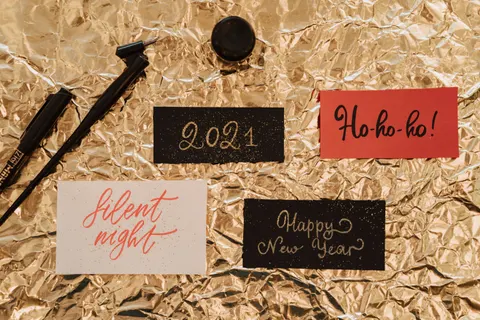 2021
Ho-ho-ho!
Silent
night
Happy
New Year